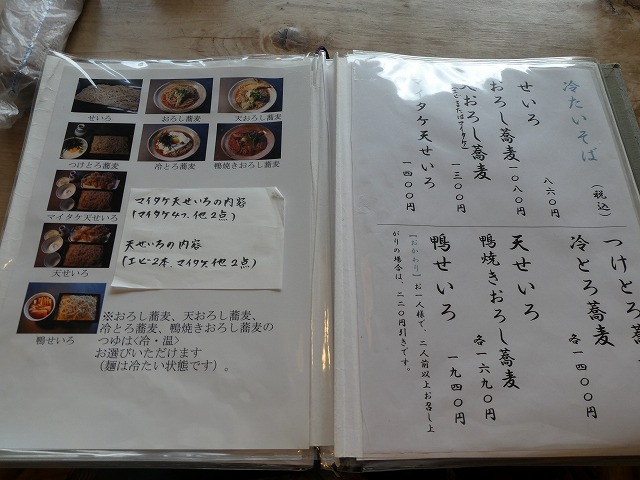 せいろ
おろし蕎麦
天おろし蕎麦
つけとろ蕎麦
冷とろ蕎麦
鴨焼きおろし蕎麦
マイタケ天せいろ
天せいろ
鴨せいろ
マイタケ天せいろの内容
(マイタケ4つ、他2点)
天せいろの内容
(エビ一2本、マイタケ、他2点)
※おろし蕎麦、天おろし蕎麦、
冷とろ蕎麦、鴨焼きおろし蕎麦の
つゆは<冷・温>
お選びいただけます
(麺は冷たい状態です)。
冷たいそば (税込)
せいろ 八六〇円
おろし蕎麦 一〇八〇円
おろし蕎麦 一三〇〇円
マイタケ天せいろ 一四〇〇円
つけとろ蕎麦
冷とろ蕎麦 各一四〇〇円
天せいろ
鴨焼きおろし蕎麦 各一六九〇円
鴨せいろ 一九四〇円
【おかわり】お一人様で、二人前以上お召し上
がりの場合は、二二〇円引きです。